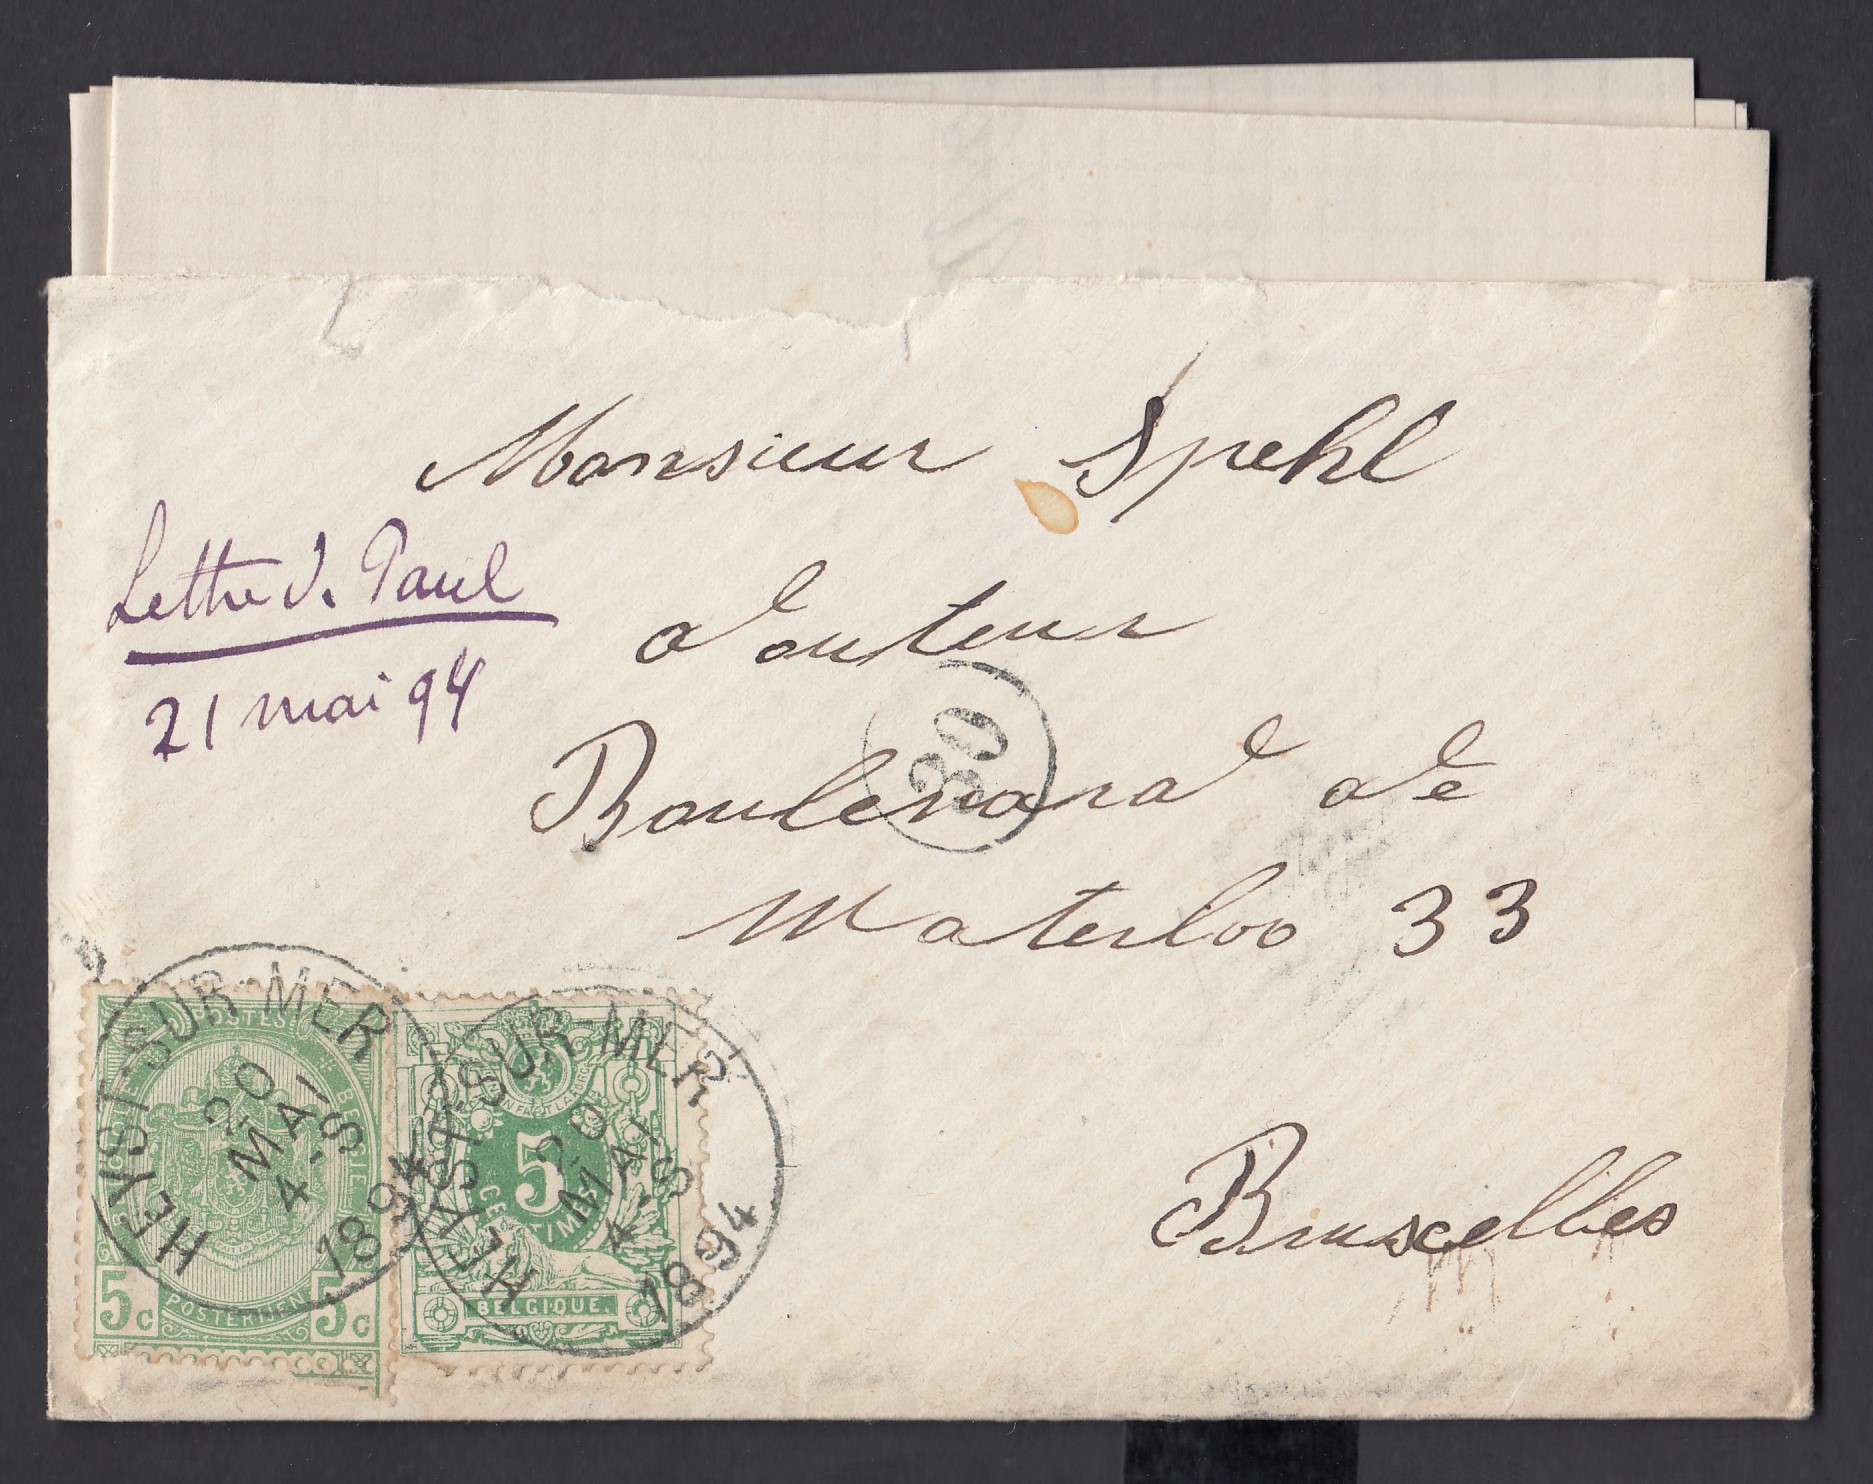 Monsieur Spehl
docteur
Boulevard de
Waterloo 33
Bruxelles
Lettre d. Paul
21 mai 94
30
HEYST-SUR-MER
20
MAI
4-S
1894
POSTES
BELGIE
POSTERIJEN
5c 5c
HEYST-SUR-MER
20
MAI
4-S
1894
5
CENTIMES
BELGIQUE.